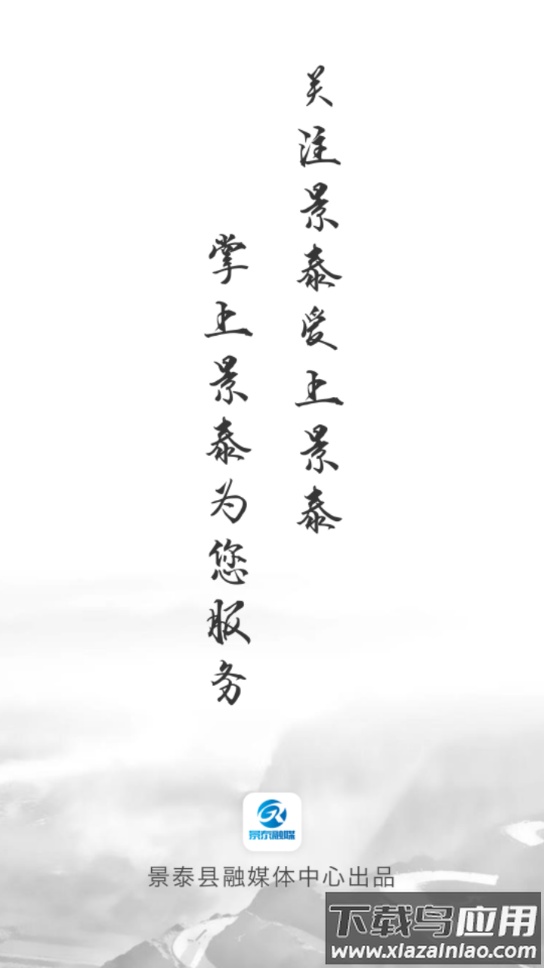 关注景泰受上景泰
掌上景泰为您服务
景泰融媒
景泰县融媒体中心出品
下载鸟应用
www.xlazainlao.com